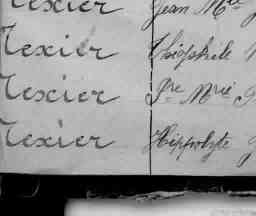 Texier Jean Mie
Texier Théophile
Texier Jne Mrie
Texier Hippolyte